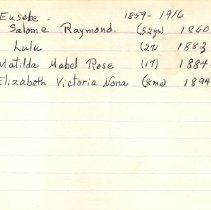 Eusebe. 1859-1916
Salome Raymond. (52yrs) 1860
Lulu (27) 1883
Matilda Mabel Rose (17) 1884
Elizabeth Victoria Nona (8mo) 1894